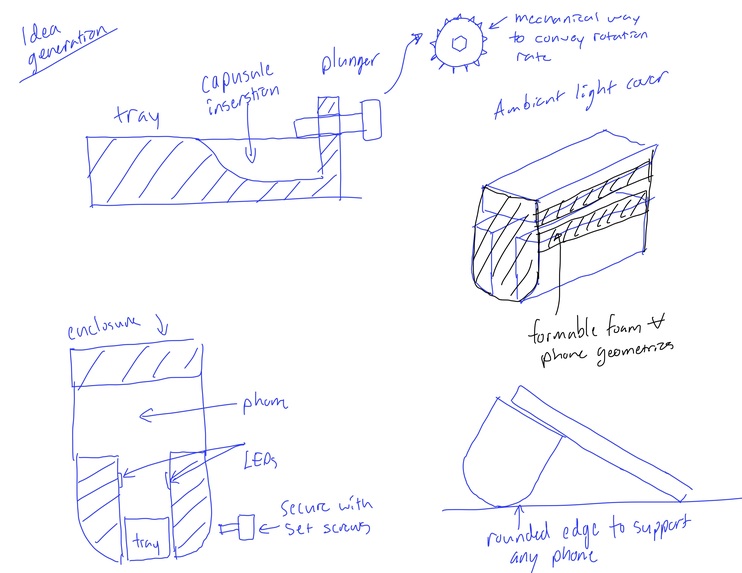 Idea
generation
tray
capusule
inserstion
plunger
mechanical way
to convey rotation
rate
Ambient light cover
formable foam ∀
phone geometries
enclosure
phone
LEDs
tray
secure with
set screws
rounded edge to support
any phone